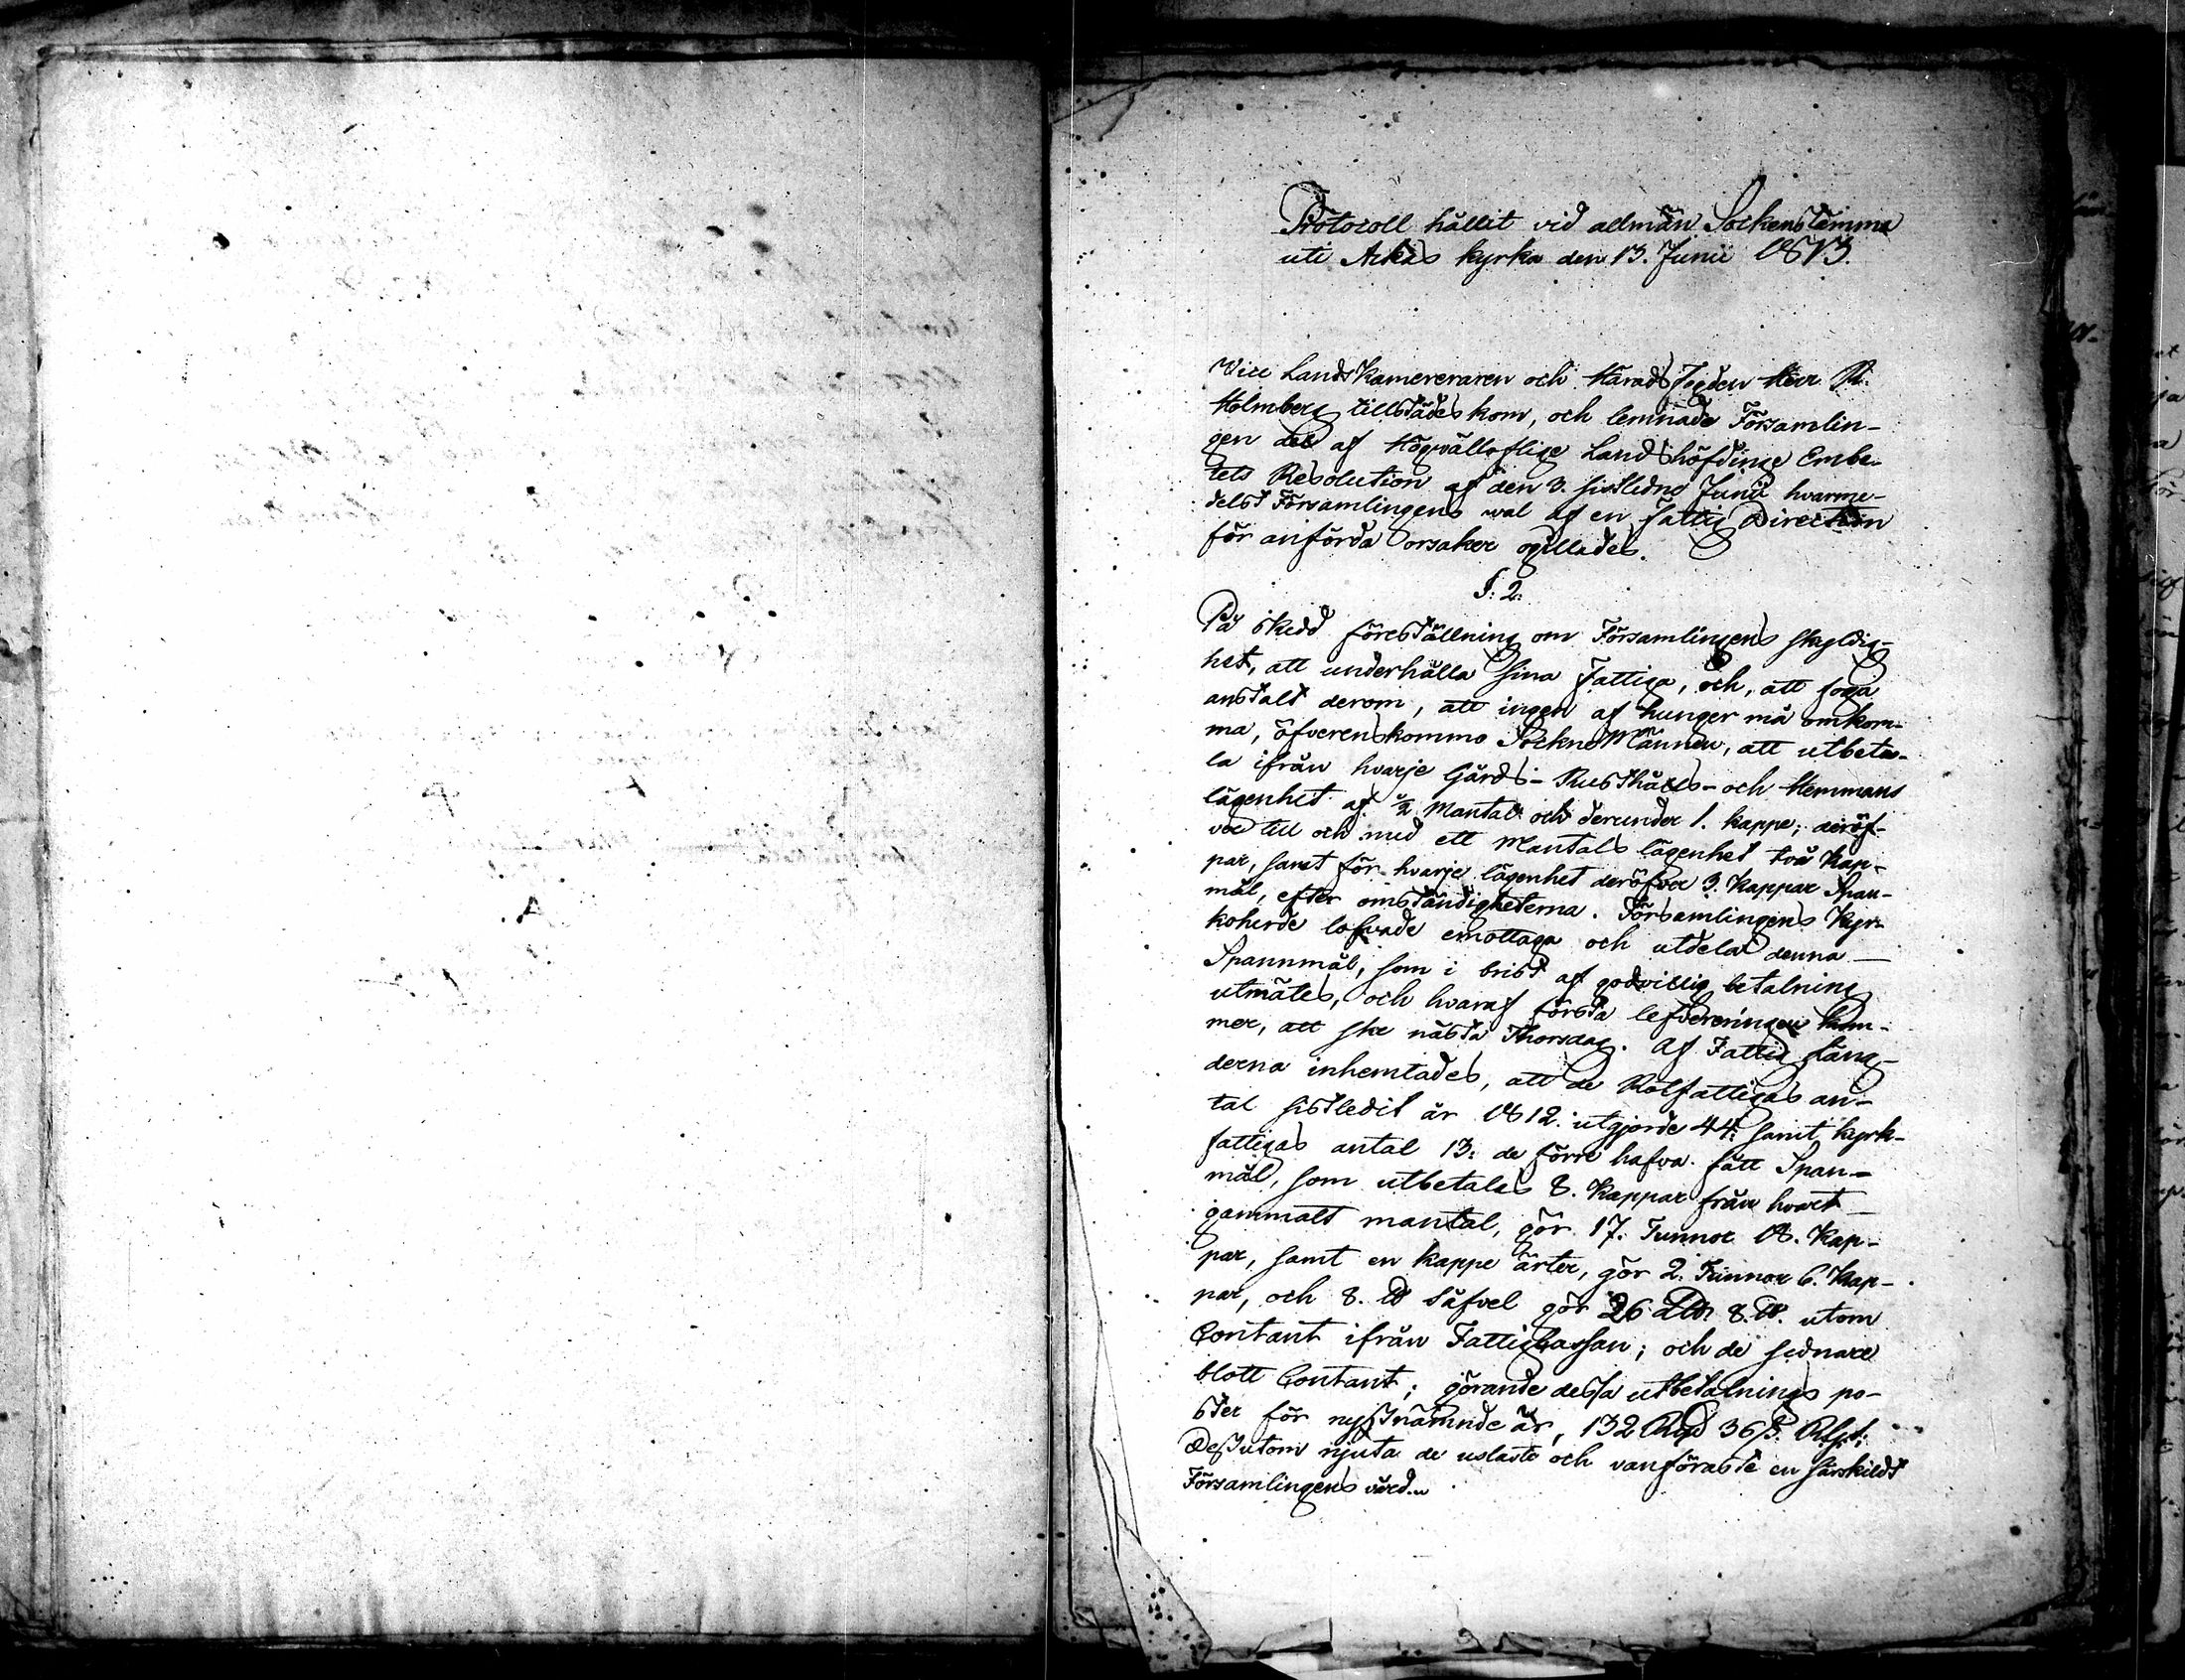 Protocoll hållit vid allmän Sockenstämma
uti Askas kyrka den 13. Junii 1813.
Vice LandsKamereraren och HäradsFogden Herr R.
Holmberg tillstädes kom, och lemnade Församlin-
gen del af Högvälloflige Landshöfdinge Embe-
tets Resolution af den 3. sistledne Junii hvarme-
delst Församlingens wal af en fattig Direction
för anförda orsaker ogillades.
§. 2.
På skedd föreställning om Församlingens skyldig-
het, att underhålla sina Fattiga, och, att foga
anstalt derom, att ingen af hunger må omkom-
ma, öfverenskommo SockneMännen, att utbeta-
la ifrån hvarje Gårds- Rusthålls- och Hemmans
lägenhet af ½ Mantal och derunder 1. kappe; deröf-
ver till och med ett Mantals lägenhet två Kap-
par, samt för hvarje lägenhet deröfver 3. Kappar Span-
mål, efter omständigheterna. Församlingens Kyr-
koherde lofvade emottaga och utdela denna
Spannmål, som i brist af godvillig betalning
utmätes, och hvaraf första lefvereringen kom-
mer, att ske nästa Thorsdag. Af Fattig
derna inhemtades, att de Rotfattigas an-
tal sistledit år 1812. utgjorde 44: samt kyrk-
fattigas antal 13: de förre hafva fått Span-
mål, som utbetales 8. Kappar från hvart
gammalt mantal, gör 17. Tunnor 18. Kap-
par, samt en kappe ärter, gör 2. Tunnor 6. Kap-
par, och 8. ℔ såfvel gör 26 L℔ 8. ℔. utom
Contant ifrån Fattigcassan; och de sednare
blott Contant; görande dessa utbetalnings po-
ster för nyssnämnde år, 132 Rd 36 ß. Rgs;
Dessutom njuta de uslaste och vanföraste en särskildt
Församlingens vård...